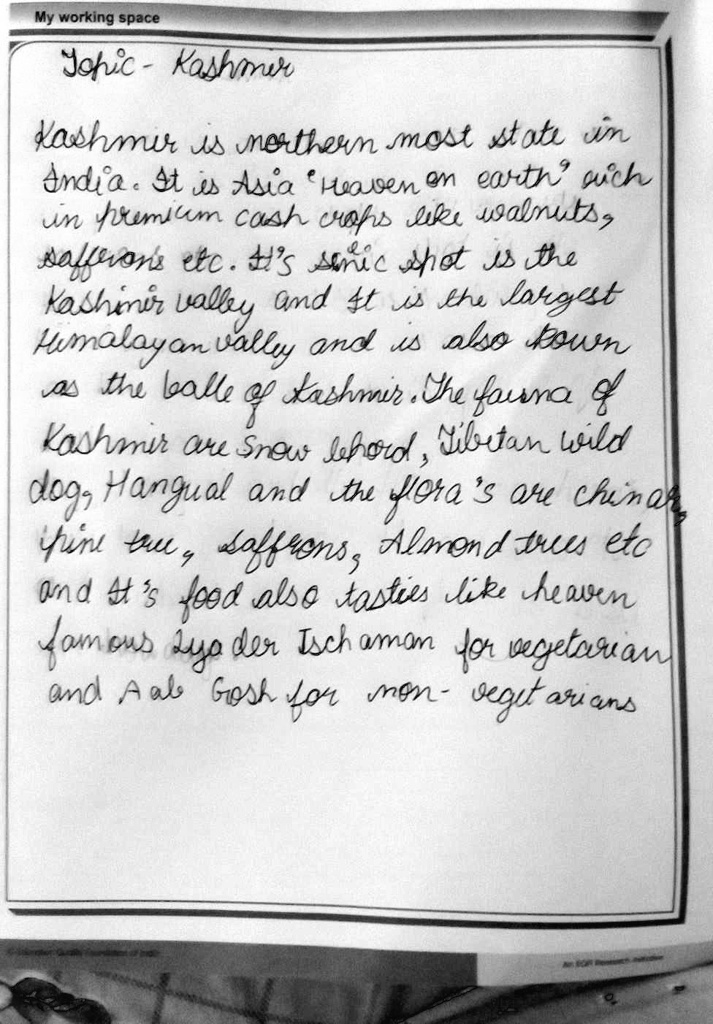 My working space
Topic - Kashmir
Kashmir is northern most state in
India. It is Asia "Heaven on earth" such
in premium cash crops like walnuts,
saffrons etc. It's senic spot is the
Kashmir valley and It is the largest
Himalayan valley and is also kown
as the balle of Kashmir. The fauna of
Kashmir are Snow lehord, Tibetan wild
dog, Hangual and the flora's are chinar,
pine tree, saffrons, Almond trees etc
and It's food also tasties like heaven
famous Lyader Tschaman for vegetarian
and Aab Gosh for non-vegetarians
An EQR Research Initiative